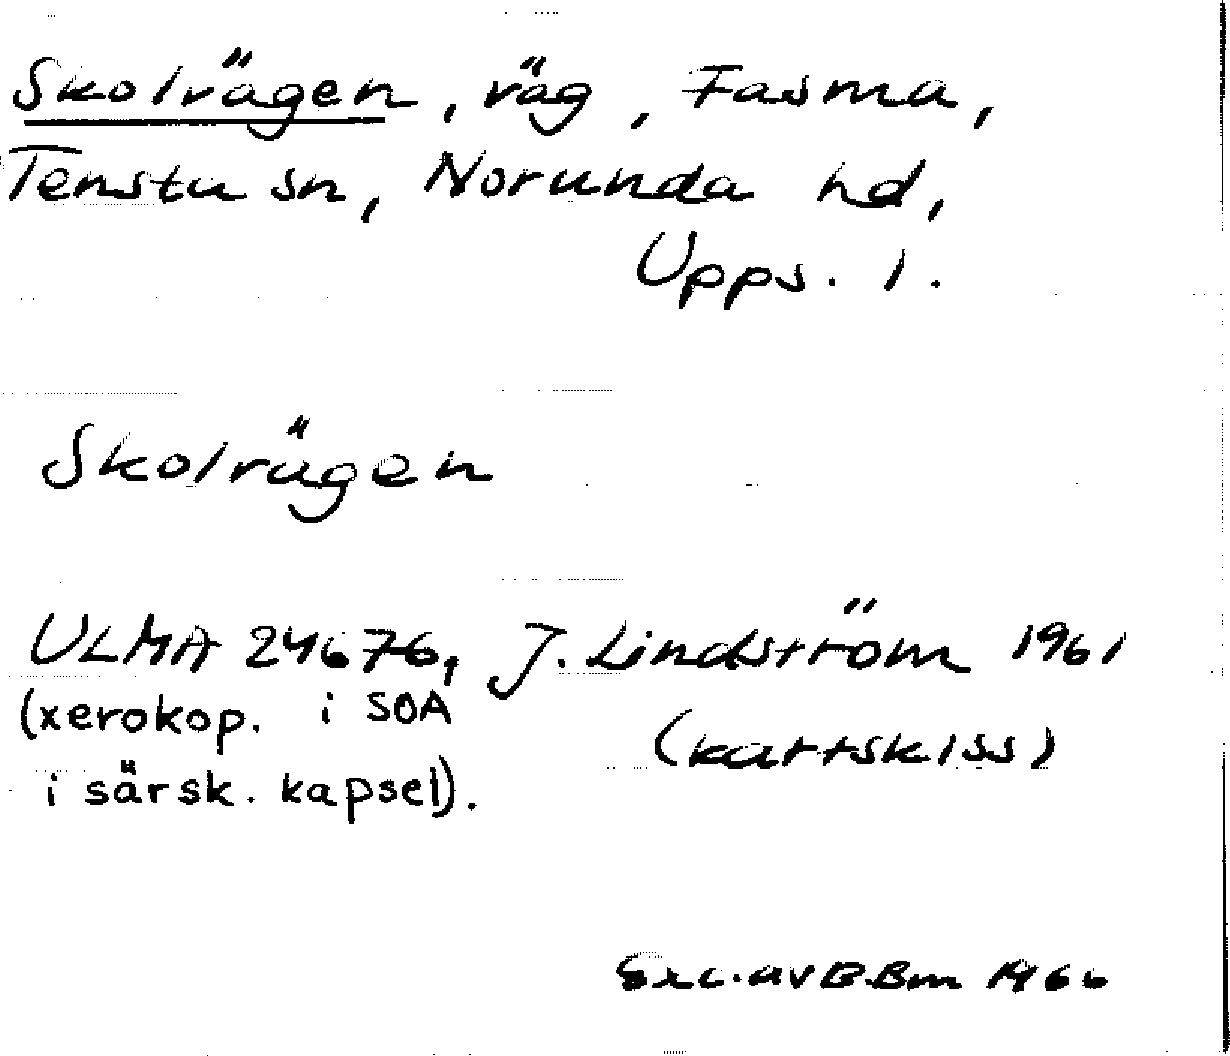 Skolvägen, väg, Fasma,
Tensta sn, Norunda hd,
Upps. l.
Skolvägen
ULMA 24676, J. Lindström 1961
(xerokop. i SOA (kartskiss)
i särsk. kapsel).
Exc. av B.Bm 1966